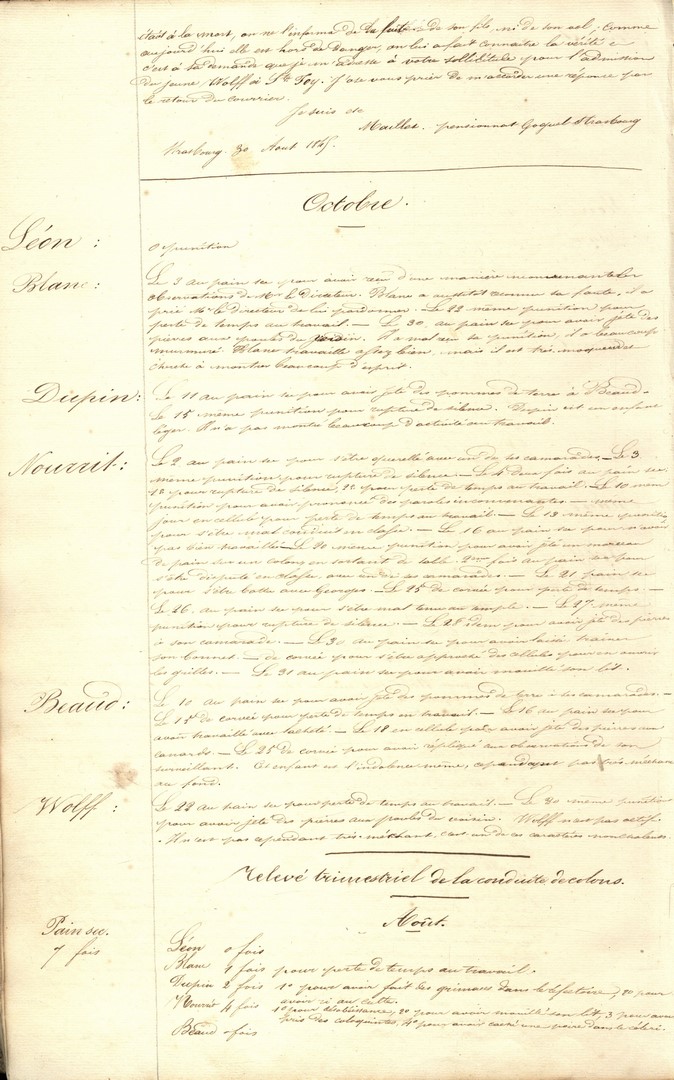 était à la mort, on ne l'informa de la fuite de son fils, ni de son vol; comme
aujourd'hui elle est hors de danger, on lui a fait connaître la vérité e
c'est à sa demande que je m'adresse à votre sollicitude pour l'admission
du jeune Wolff à Ste Foy. J'ose vous prier de m'accorder une réponse par
le retour du courrier.
Je suis etc
Maillet. pensionnat Goguel Strasbourg
Strasbourg 30 Août 1845.
Octobre.
Léon :
0 punition
Blanc :
Le 3 au pain sec pour avoir reçu d'une manière inconvenante les
observations de Mr le Directeur. Blanc a aussitôt reconnu sa faute, il a
prié Mr le directeur de lui pardonner. Le 22 même punition pour
perte de temps au travail. — Le 30 au pain sec pour avoir jeté des
pierres aux poules du jardin. Il a mal reçu sa punition, il a beaucoup
murmuré. Blanc travaille assez bien, mais il est très moqueur et
cherche à montrer beaucoup d'esprit.
Dupin :
Le 11 au pain sec pour avoir jeté des pommes de terre à Beaud. -
Le 15 même punition pour rupture de silence. Dupin est un enfant
léger. Il n'a pas montré beaucoup d'activité au travail.
Nourrit :
Le 2 au pain sec pour s'être querellé avec un de ses camarades. - Le 3
même punition pour rupture de silence - Le 4 deux fois au pain sec
1° pour rupture de silence, 2° pour perte de temps au travail. Le 10 mêm
punition pour avoir prononcé des paroles inconvenantes. — même
jour en cellule pour perte de temps au travail. - Le 13 même punition
pour s'être mal conduit en classe. - Le 16 au pain sec pour n'avoir
pas bien travaillé - Le 20 même punition pour avoir jeté un morceau
de pain sur un colon en sortant de table. 2eme fois au pain sec pour
s'être disputé en classe avec un de ses camarades. - Le 21 pain sec
pour s'être battu avec Georges. - Le 25 de corvée pour perte de temps. -
Le 26. au pain sec pour s'être mal tenu au temple. - Le 27 même
punition pour rupture de silence. - Le 28 idem pour avoir jeté des pierres
à son camarade. - Le 30 au pain sec pour avoir laissé traîner
son bonnet. - de corvée pour s'être approché des cellules pour en ouvrir
les grilles. - Le 31 au pain sec pour avoir mouillé son lit.
Beaud :
Le 10 au pain sec pour avoir jeté des pommes de terre à ses camarades. -
Le 15 de corvée pour perte de temps au travail - Le 16 au pain sec pour
avoir travaillé avec lâcheté. - Le 18 en cellule pour avoir jeté des pierres aux
canards. - Le 25 de corvée pour avoir répliqué aux observations de son
surveillant. Cet enfant est l'indolence même, cependant pas très méchant
au fond.
Wolff :
Le 22 au pain sec pour perte de temps au travail. - Le 30 même punition
pour avoir jeté des pierres aux poules du voisin. Wolff n'est pas actif.
Il n'est pas cependant très méchant, c'est un de ces caractères nonchalants.
Relevé trimestriel de la conduite de colons.
Août.
Pain sec.
7 fois
Léon 0 fois
Blanc 1 fois pour perte de temps au travail.
Dupin 2 fois 1° pour avoir fait des grimaces dans le réfectoire, 2° pour
avoir ri au culte.
Nourrit 4 fois 1° pour désobéissance, 2° pour avoir mouillé son lit, 3 pour avoir
pris des coloquintes, 4° pour avoir caché une poire dans le céleri.
Beaud 0 fois